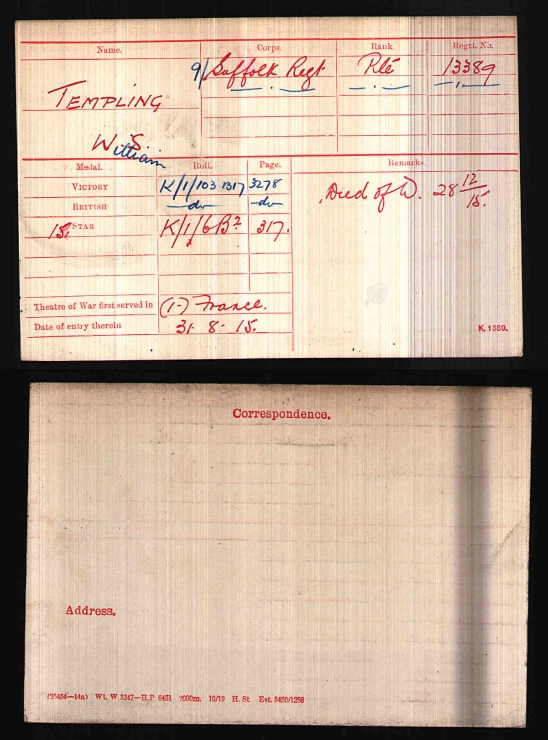 Name. Corps. Rank Regtl. No.
9/ Suffolk Regt Pte 13389
TEMPLING
W. S.
William
Medal. Roll. Page. Remarks.
VICTORY K/1/103 B17 3278 Died of W. 28 12/15.
BRITISH do do
15 STAR K/1/6B2 317.
Theatre of War first served in (1-) France.
Date of entry therein 31. 8. 15.
K. 1380.
Correspondence.
Address.
Wt. W 3347—H.P 6451 2000m. 10/19 H. St